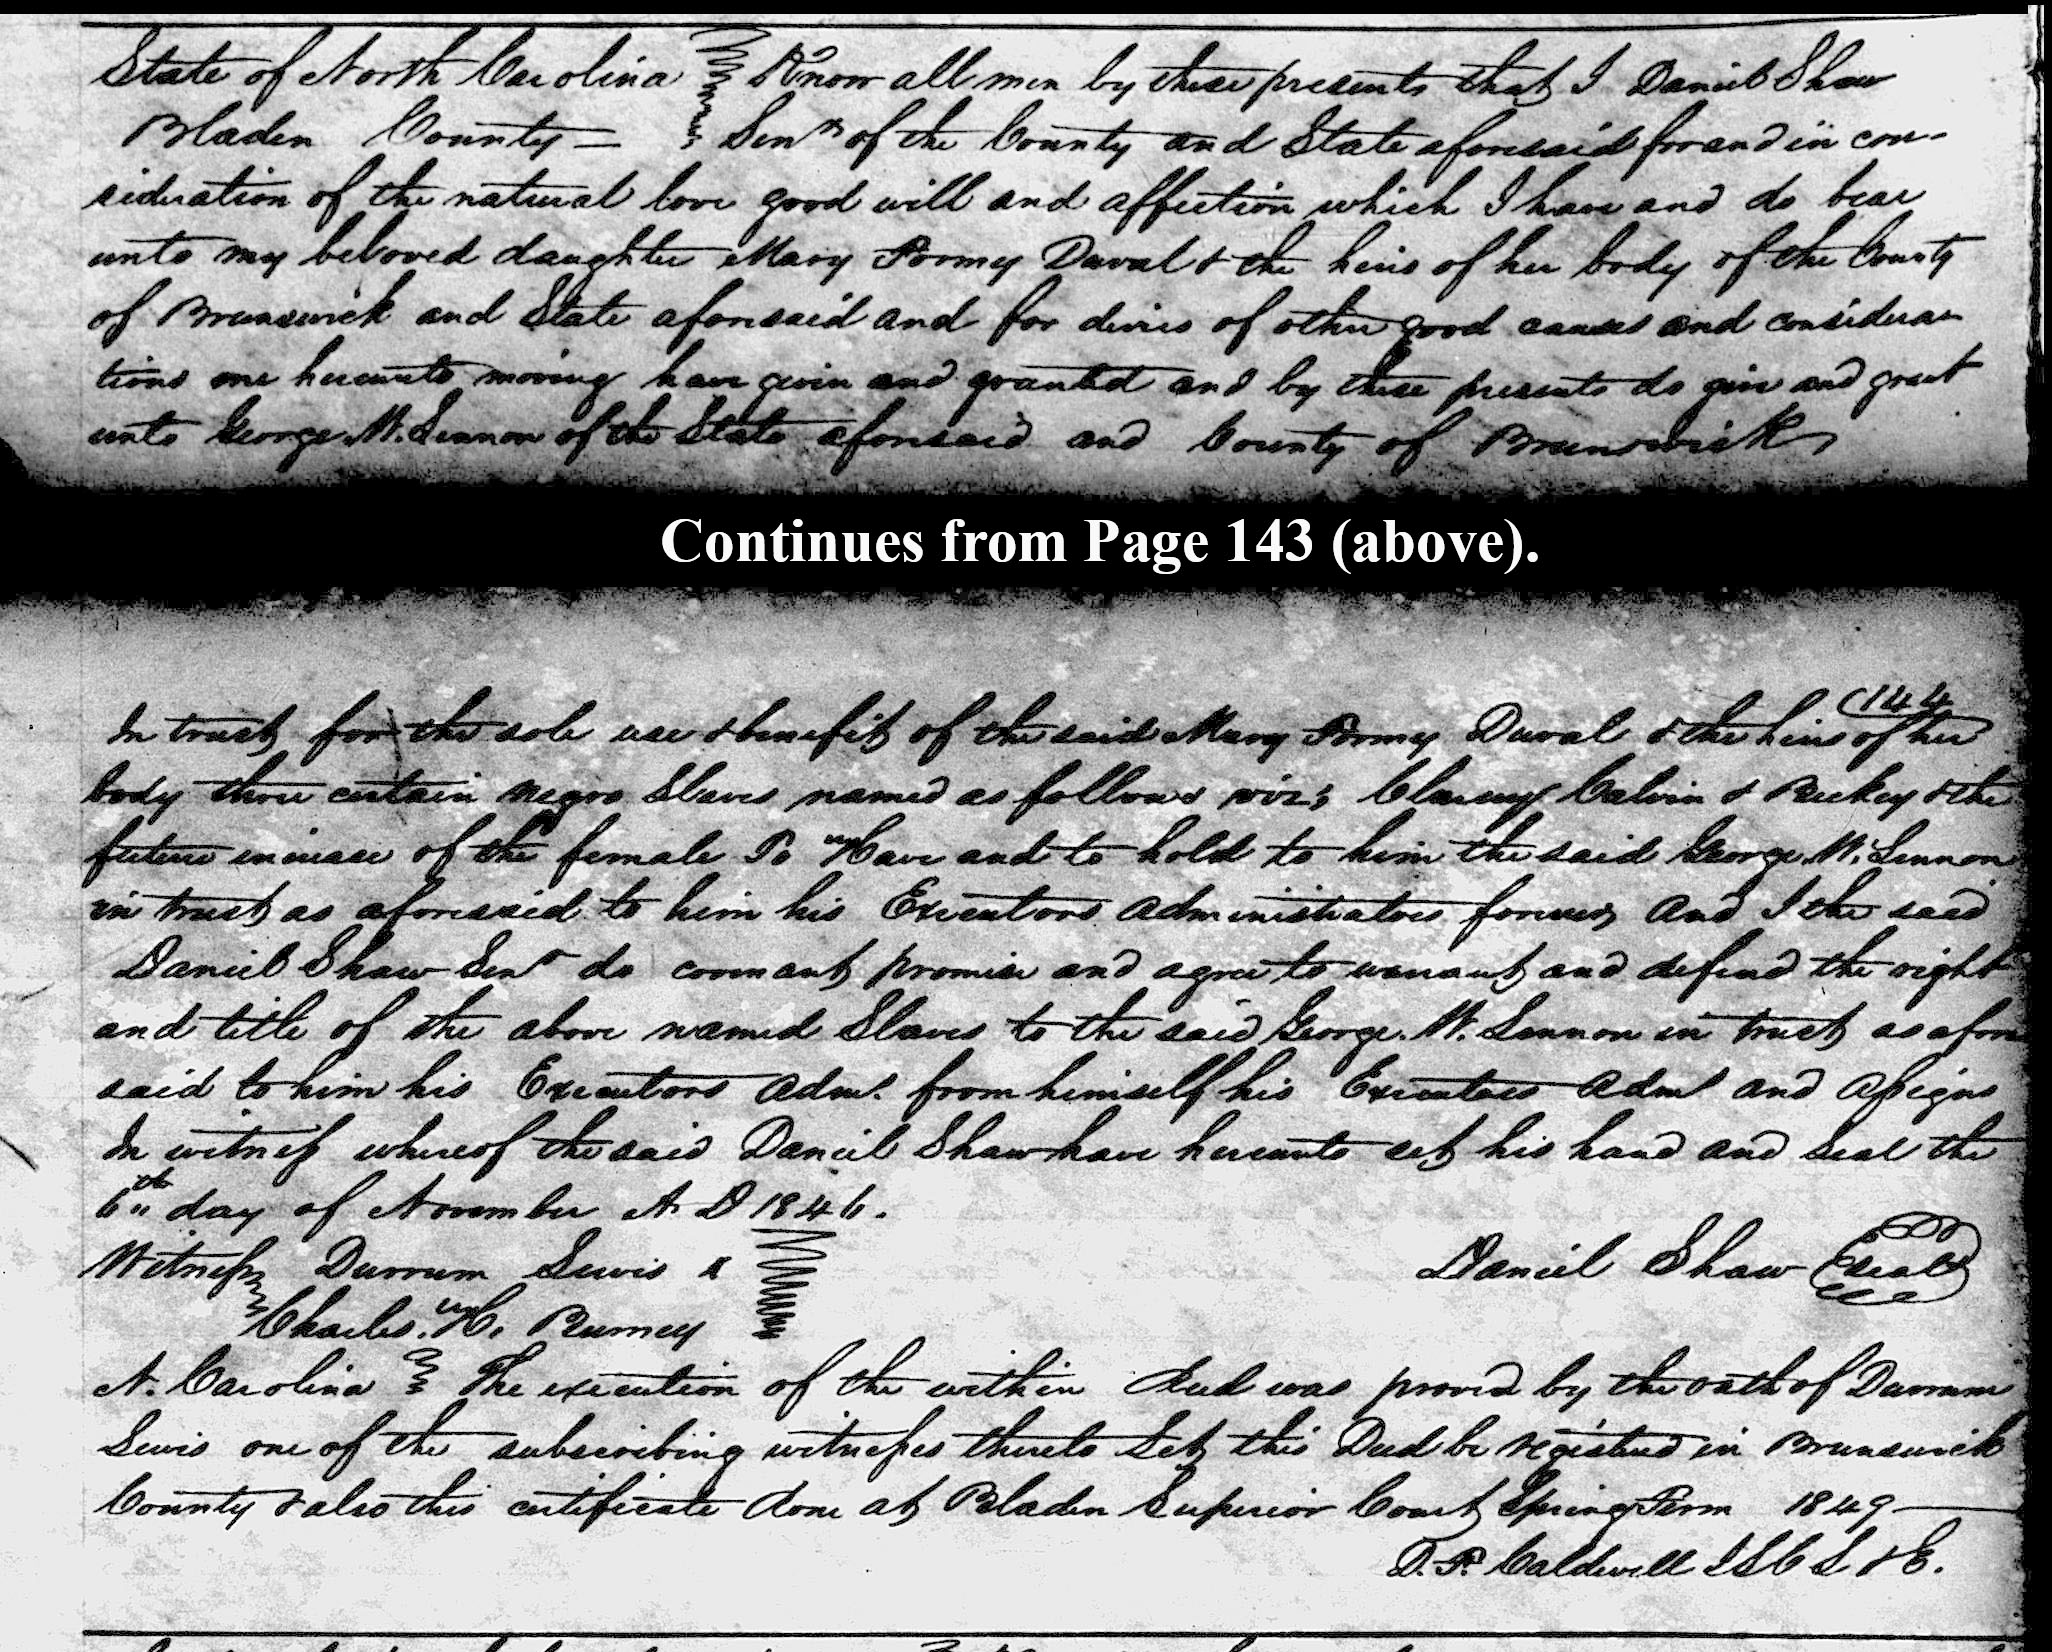 State of North Carolina Know all men by these presents that I Daniel Shaw
Bladen County = Senr of the County and State aforesaid for and in con-
sideration of the natural love good will and affection which I have and do bear
unto my beloved daughter Mary Formey Duval & the heirs of her body of the County
of Brunswick and State aforesaid and for divers of other good causes and considera-
tions me hereunto moving have given and granted and by these presents do give and grant
unto George W. Lennon of the State aforesaid and County of Brunswick
Continues from Page 143 (above).
(144
In trust for the sole use & benefit of the said Mary Formey Duval & the heirs of her
body three certain negro Slaves named as follows viz; Calvin & Beckey & the
future increase of the female To Have and to hold to him the said George W. Lennon
in trust as aforesaid to him his Executors Administrators forever And I the said
Daniel Shaw Senr do covenant promise and agree to warrant and defend the right
and title of the above named Slaves to the said George. W. Lennon in trust as afore
said to him his Executors Adms. from himself his Executors Adms and assigns
In witness whereof the said Daniel Shaw have hereunto set his hand and seal the
6th day of November A. D 1846.
Witness Durrum Lewis Daniel Shaw (seal)
Charles. H. Burney
N. Carolina The execution of the within Deed was proved by the oath of Durrum
Lewis one of the subscribing witnesses thereto Let this Deed be registered in Brunswick
County & also this certificate done at Bladen Superior Court Spring Term 1849
D. F. Caldwell J S C L & E.